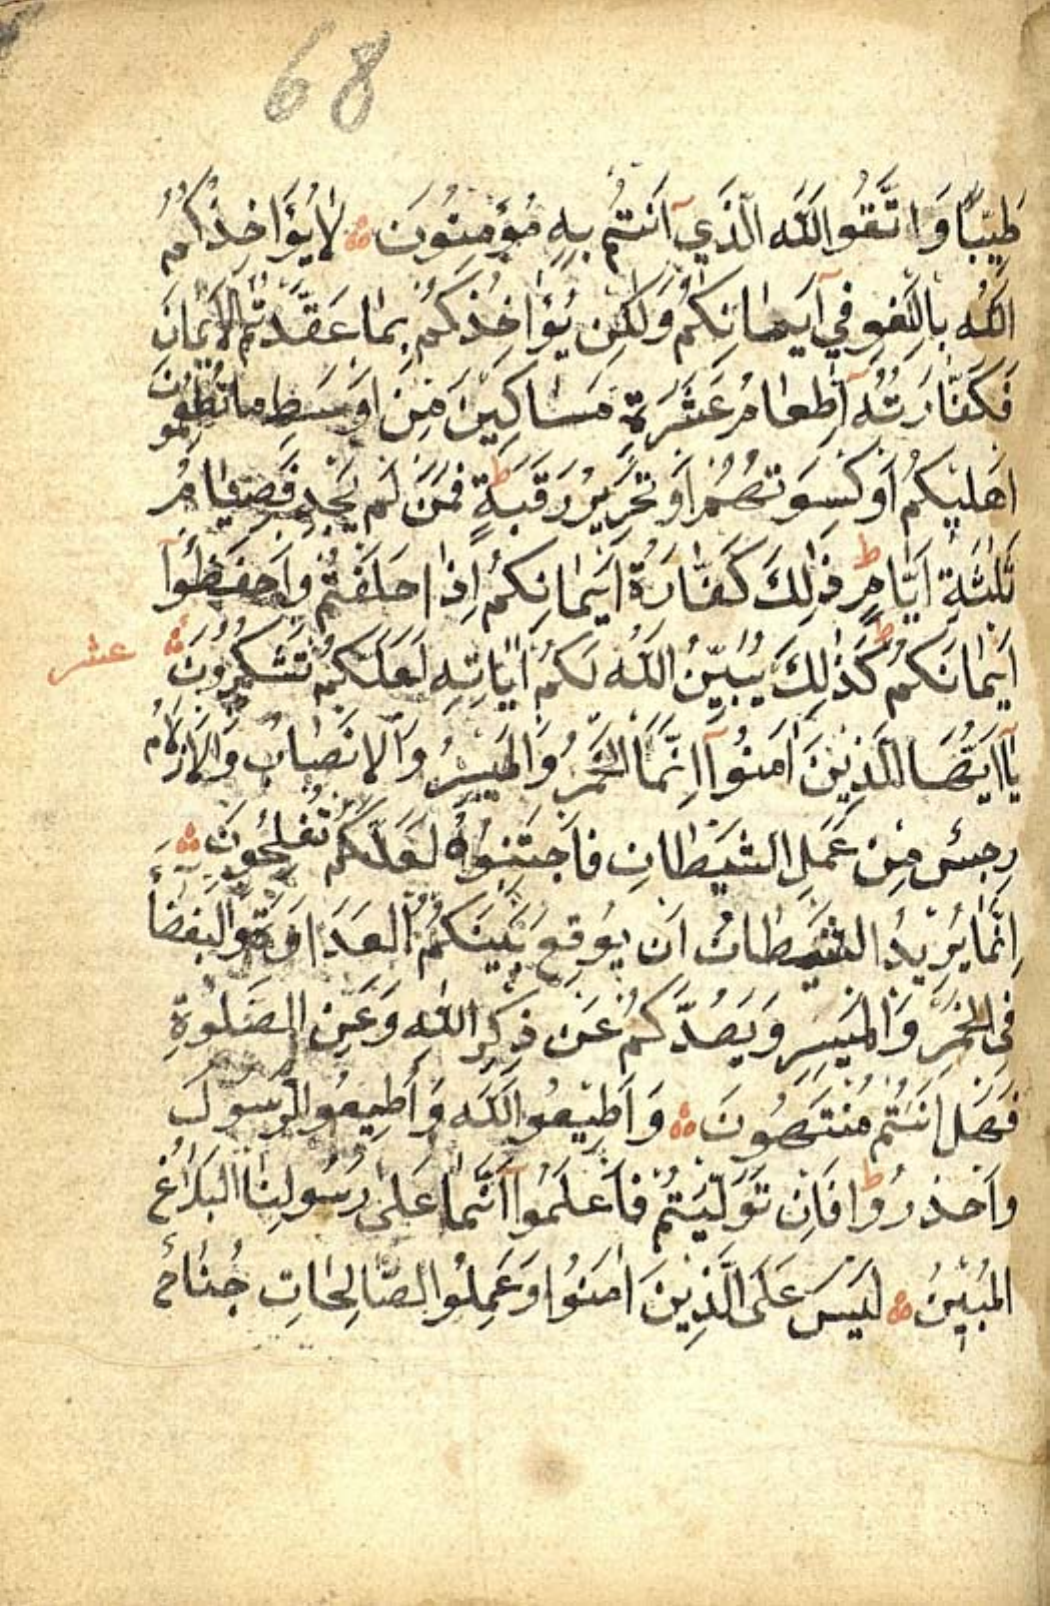 68
طَيِّبًا وَاتَّقُوا اللَّهَ الَّذِي أَنتُم بِهِ مُؤْمِنُونَ ۞ لَا يُؤَاخِذُكُمُ
اللَّهُ بِاللَّغْوِ فِي أَيْمَانِكُمْ وَلَكِن يُؤَاخِذُكُم بِمَا عَقَّدتُّمُ الْأَيْمَانَ
فَكَفَّارَتُهُ إِطْعَامُ عَشَرَةِ مَسَاكِينَ مِنْ أَوْسَطِ مَا تُطْعِمُونَ
أَهْلِيكُمْ أَوْ كِسْوَتُهُمْ أَوْ تَحْرِيرُ رَقَبَةٍ ط فَمَن لَّمْ يَجِدْ فَصِيَامُ
ثَلٰثَةِ أَيَّامٍ ط ذٰلِكَ كَفَّارَةُ أَيْمَانِكُمْ إِذَا حَلَفْتُمْ وَاحْفَظُوا
أَيْمَانَكُمْ ط كَذٰلِكَ يُبَيِّنُ اللَّهُ لَكُمْ اٰيَاتِهِ لَعَلَّكُمْ تَشْكُرُونَ ۞ عشر
يَا أَيُّهَا الَّذِينَ اٰمَنُوا إِنَّمَا الْخَمْرُ وَالْمَيْسِرُ وَالْأَنصَابُ وَالْأَزْلَامُ
رِجْسٌ مِنْ عَمَلِ الشَّيْطَانِ فَاجْتَنِبُوهُ لَعَلَّكُمْ تُفْلِحُونَ ۞
إِنَّمَا يُرِيدُ الشَّيْطَانُ أَن يُوقِعَ بَيْنَكُمُ الْعَدَاوَةَ وَالْبَغْضَاءَ
فِي الْخَمْرِ وَالْمَيْسِرِ وَيَصُدَّكُمْ عَن ذِكْرِ اللَّهِ وَعَنِ الصَّلٰوةِ
فَهَلْ أَنتُم مُّنتَهُونَ ۞ وَأَطِيعُوا اللَّهَ وَأَطِيعُوا الرَّسُولَ
وَاحْذَرُوا ط فَإِن تَوَلَّيْتُمْ فَاعْلَمُوا أَنَّمَا عَلَىٰ رَسُولِنَا الْبَلَاغُ
الْمُبِينُ ۞ لَيْسَ عَلَى الَّذِينَ اٰمَنُوا وَعَمِلُوا الصَّالِحَاتِ جُنَاحٌ